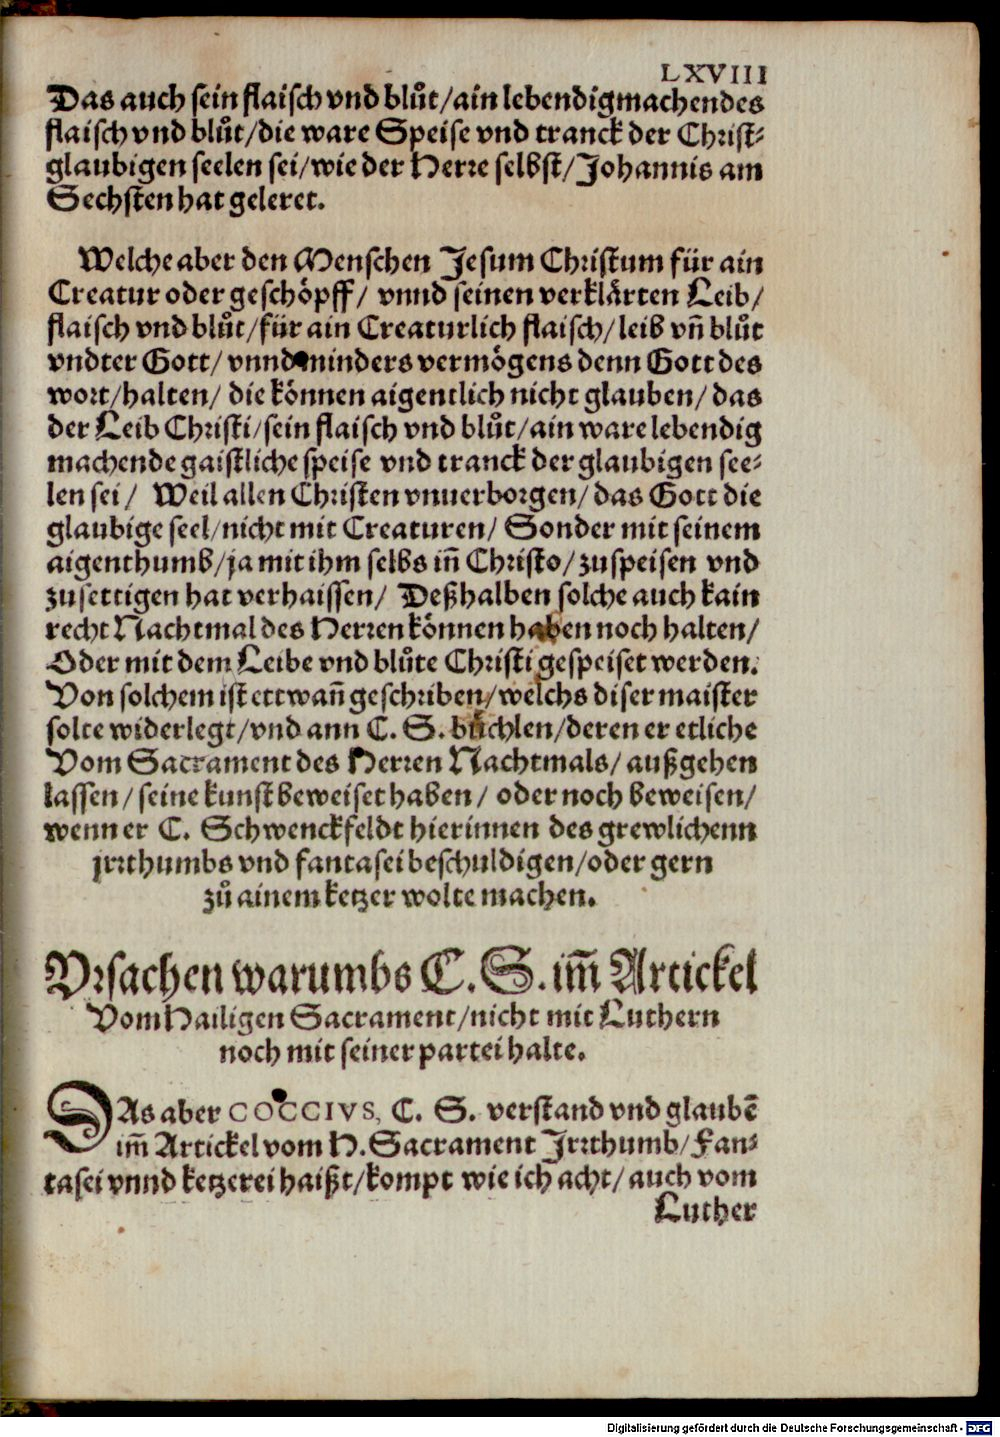 LXVIII
Das auch sein flaisch vnd blůt/ain lebendigmachendes
flaisch vnd blůt/die ware Speise vnd tranck der Christ-
glaubigen seelen sei/wie der Herre selbst/Johannis am
Sechsten hat geleret.
Welche aber den Menschen Jesum Christum für ain
Creatur oder geschöpff/ vnnd seinen verklärten Leib/
flaisch vnd blůt/für ain Creaturlich flaisch/leib vñ blůt
vndter Gott/ vnnd minders vermögens denn Gott des
wort/halten/ die können aigentlich nicht glauben/ das
der Leib Christi/sein flaisch vnd blůt/ain ware lebendig
machende gaistliche speise vnd tranck der glaubigen see-
len sei/ Weil allen Christen vnuerborgen/ das Gott die
glaubige seel/nicht mit Creaturen/ Sonder mit seinem
aigenthumb/ja mit ihm selbs iñ Christo/zuspeisen vnd
zusettigen hat verhaissen/ Deßhalben solche auch kain
recht Nachtmal des Herren können haben noch halten/
Oder mit dem Leibe vnd blůte Christi gespeiset werden.
Von solchem ist ettwañ geschriben/welchs diser maister
solte widerlegt/vnd ann C. S. bůchlen/deren er etliche
Vom Sacrament des Herren Nachtmals/ außgehen
lassen/ seine kunst beweiset haben/ oder noch beweisen/
wenn er C. Schwenckfeldt hierinnen des grewlichenn
jrrthumbs vnd fantasei beschuldigen/oder gern
zů ainem ketzer wolte machen.
Vrsachen warumbs C. S. im̃ Artickel
Vom Hailigen Sacrament/nicht mit Luthern
noch mit seiner partei halte.
DAs aber COCCIVS, C. S. verstand vnd glaubē
im̃ Artickel vom H. Sacrament Jrrthumb/Fan-
tasei vnnd ketzerei haißt/kompt wie ich acht/ auch vom
Luther
Digitalisierung gefördert durch die Deutsche Forschungsgemeinschaft - DFG